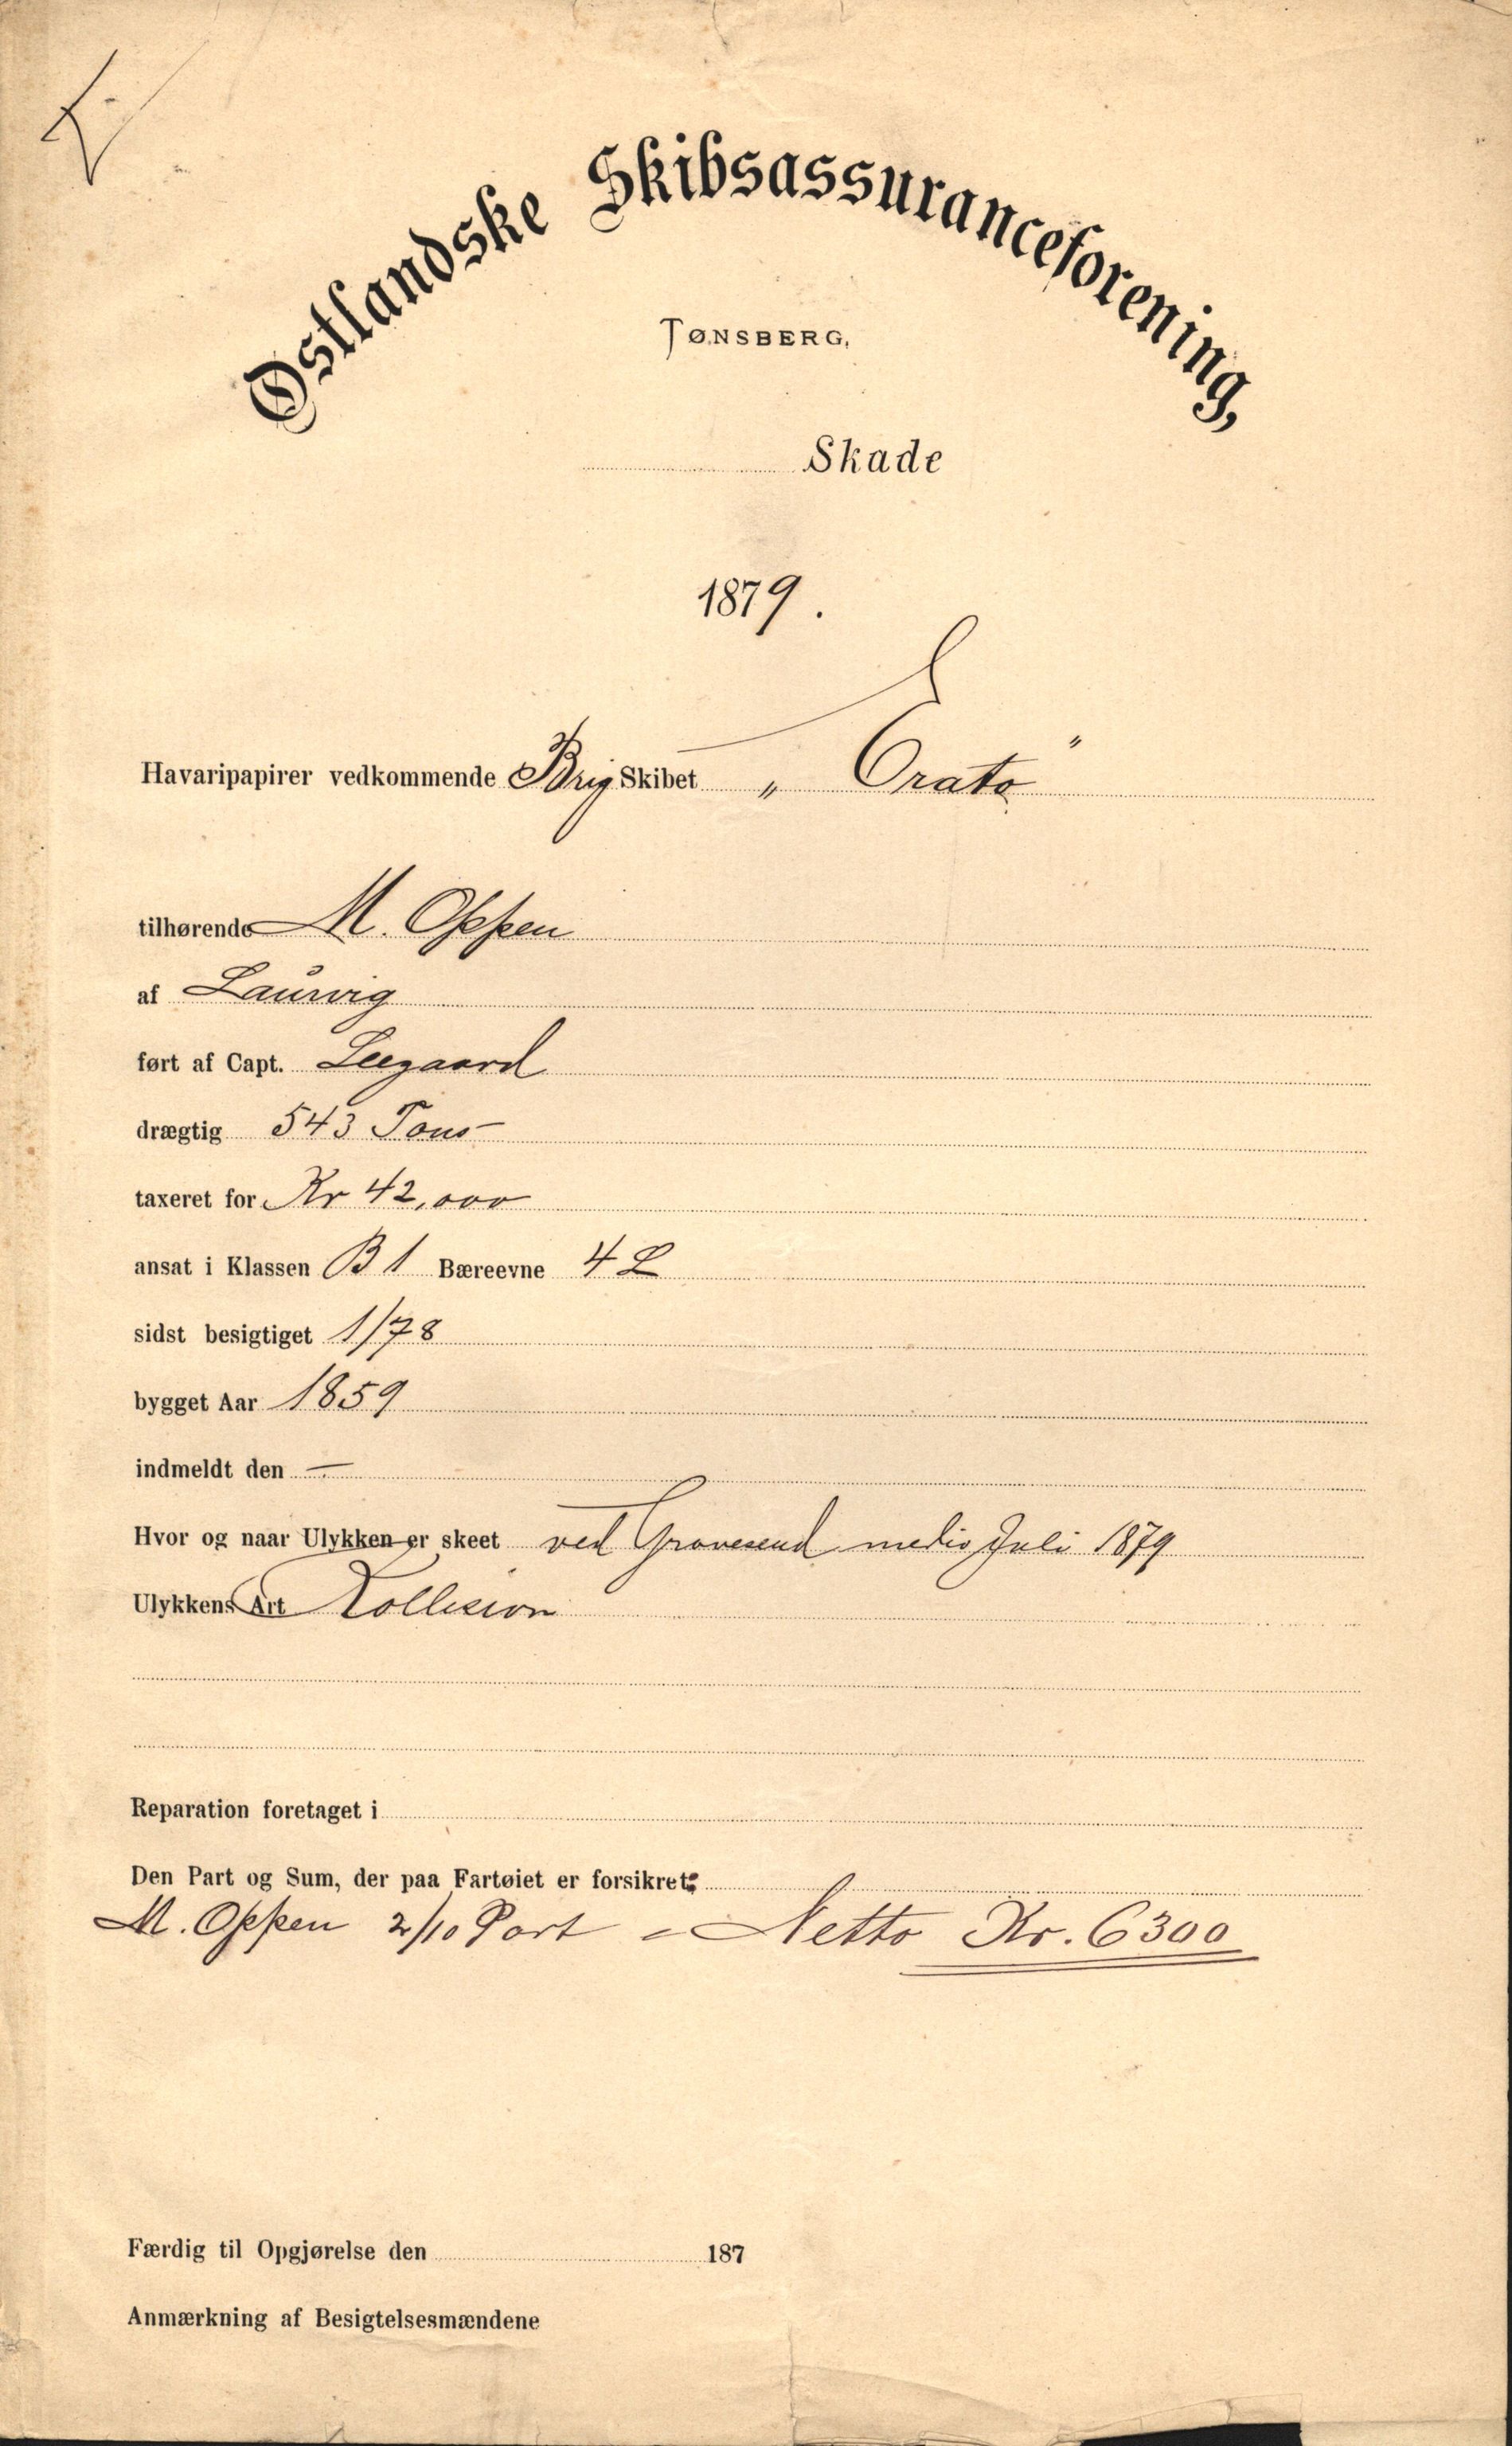 Østlandske Skibsassuranceforening,
TØNSBERG,
Skade
1879.
Havaripapirer vedkommende Brig Skibet „ Erato "
tilhørende M. Oppen
af Laurvig
ført af Capt. Leegaard
drægtig 543 Tons
taxeret for Kr 42,000
ansat i Klassen B 1 Bæreevne 4 L
sidst besigtiget 1/78
bygget Aar 1859
indmeldt den —
Hvor og naar Ulykken er skeet ved Gravesend medio Juli 1879
Ulykkens Art Kollision
Reparation foretaget i
Den Part og Sum, der paa Fartøiet er forsikret:
M. Oppen 2/10 Part = Netto Kr. 6300
Færdig til Opgjørelse den 187
Anmærkning af Besigtelsesmændene